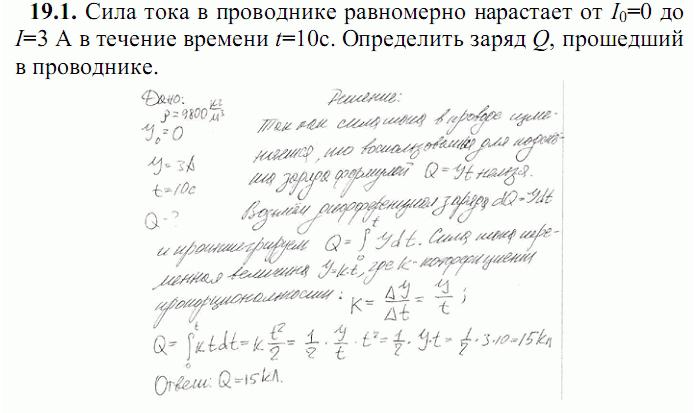 19.1. Сила тока в проводнике равномерно нарастает от I₀=0 до
I=3 А в течение времени t=10с. Определить заряд Q, прошедший
в проводнике.
Дано:
ρ=9800 кг/м³
У₀=0
У=3А
t=10с
Q-?
Решение:
Так как сила тока в проводе изме-
няется, то воспользоваться для подсчё-
та заряда формулой Q=Уt нельзя.
Возьмём дифференциал заряда dQ=Уdt
и проинтегрируем Q=∫₀ᵗ Уdt. Сила тока пере-
менная величина У=kt, где k-коэффициент
пропорциональности: K = ΔУ/Δt = У/t;
Q=∫₀ᵗ ktdt=k t²/2 = 1/2 · У/t · t²= 1/2 · У·t= 1/2 · 3·10=15кл
Ответ: Q=15кл.